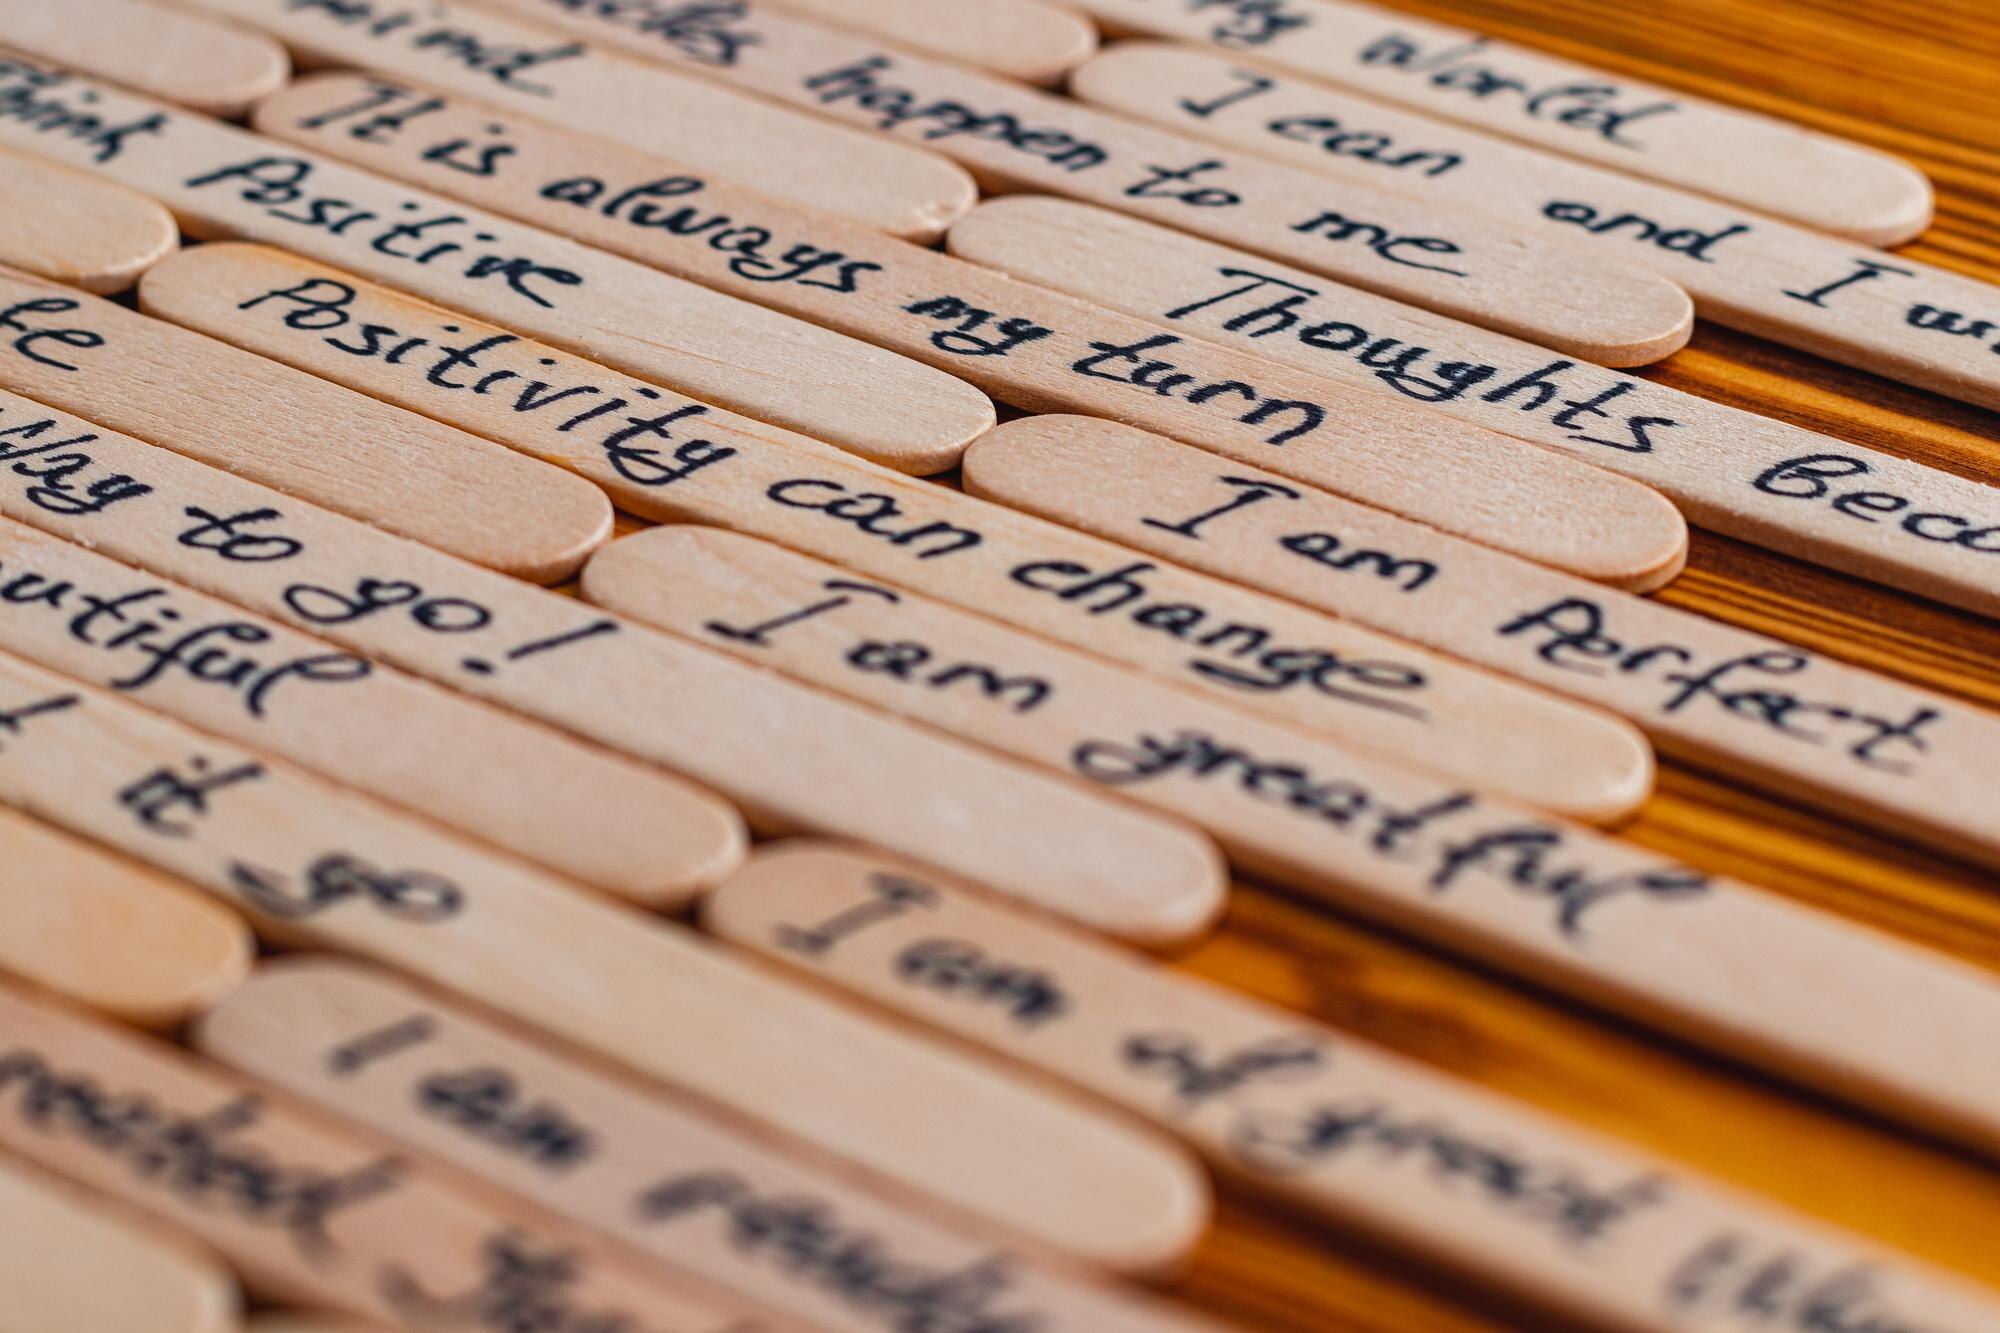 my world
I can and I
happen to me
mind
Thoughts
It is always my turn
think Positive
I am Perfect
Positivity can change
I am greatful
Way to go!
it go
I am of great
I am